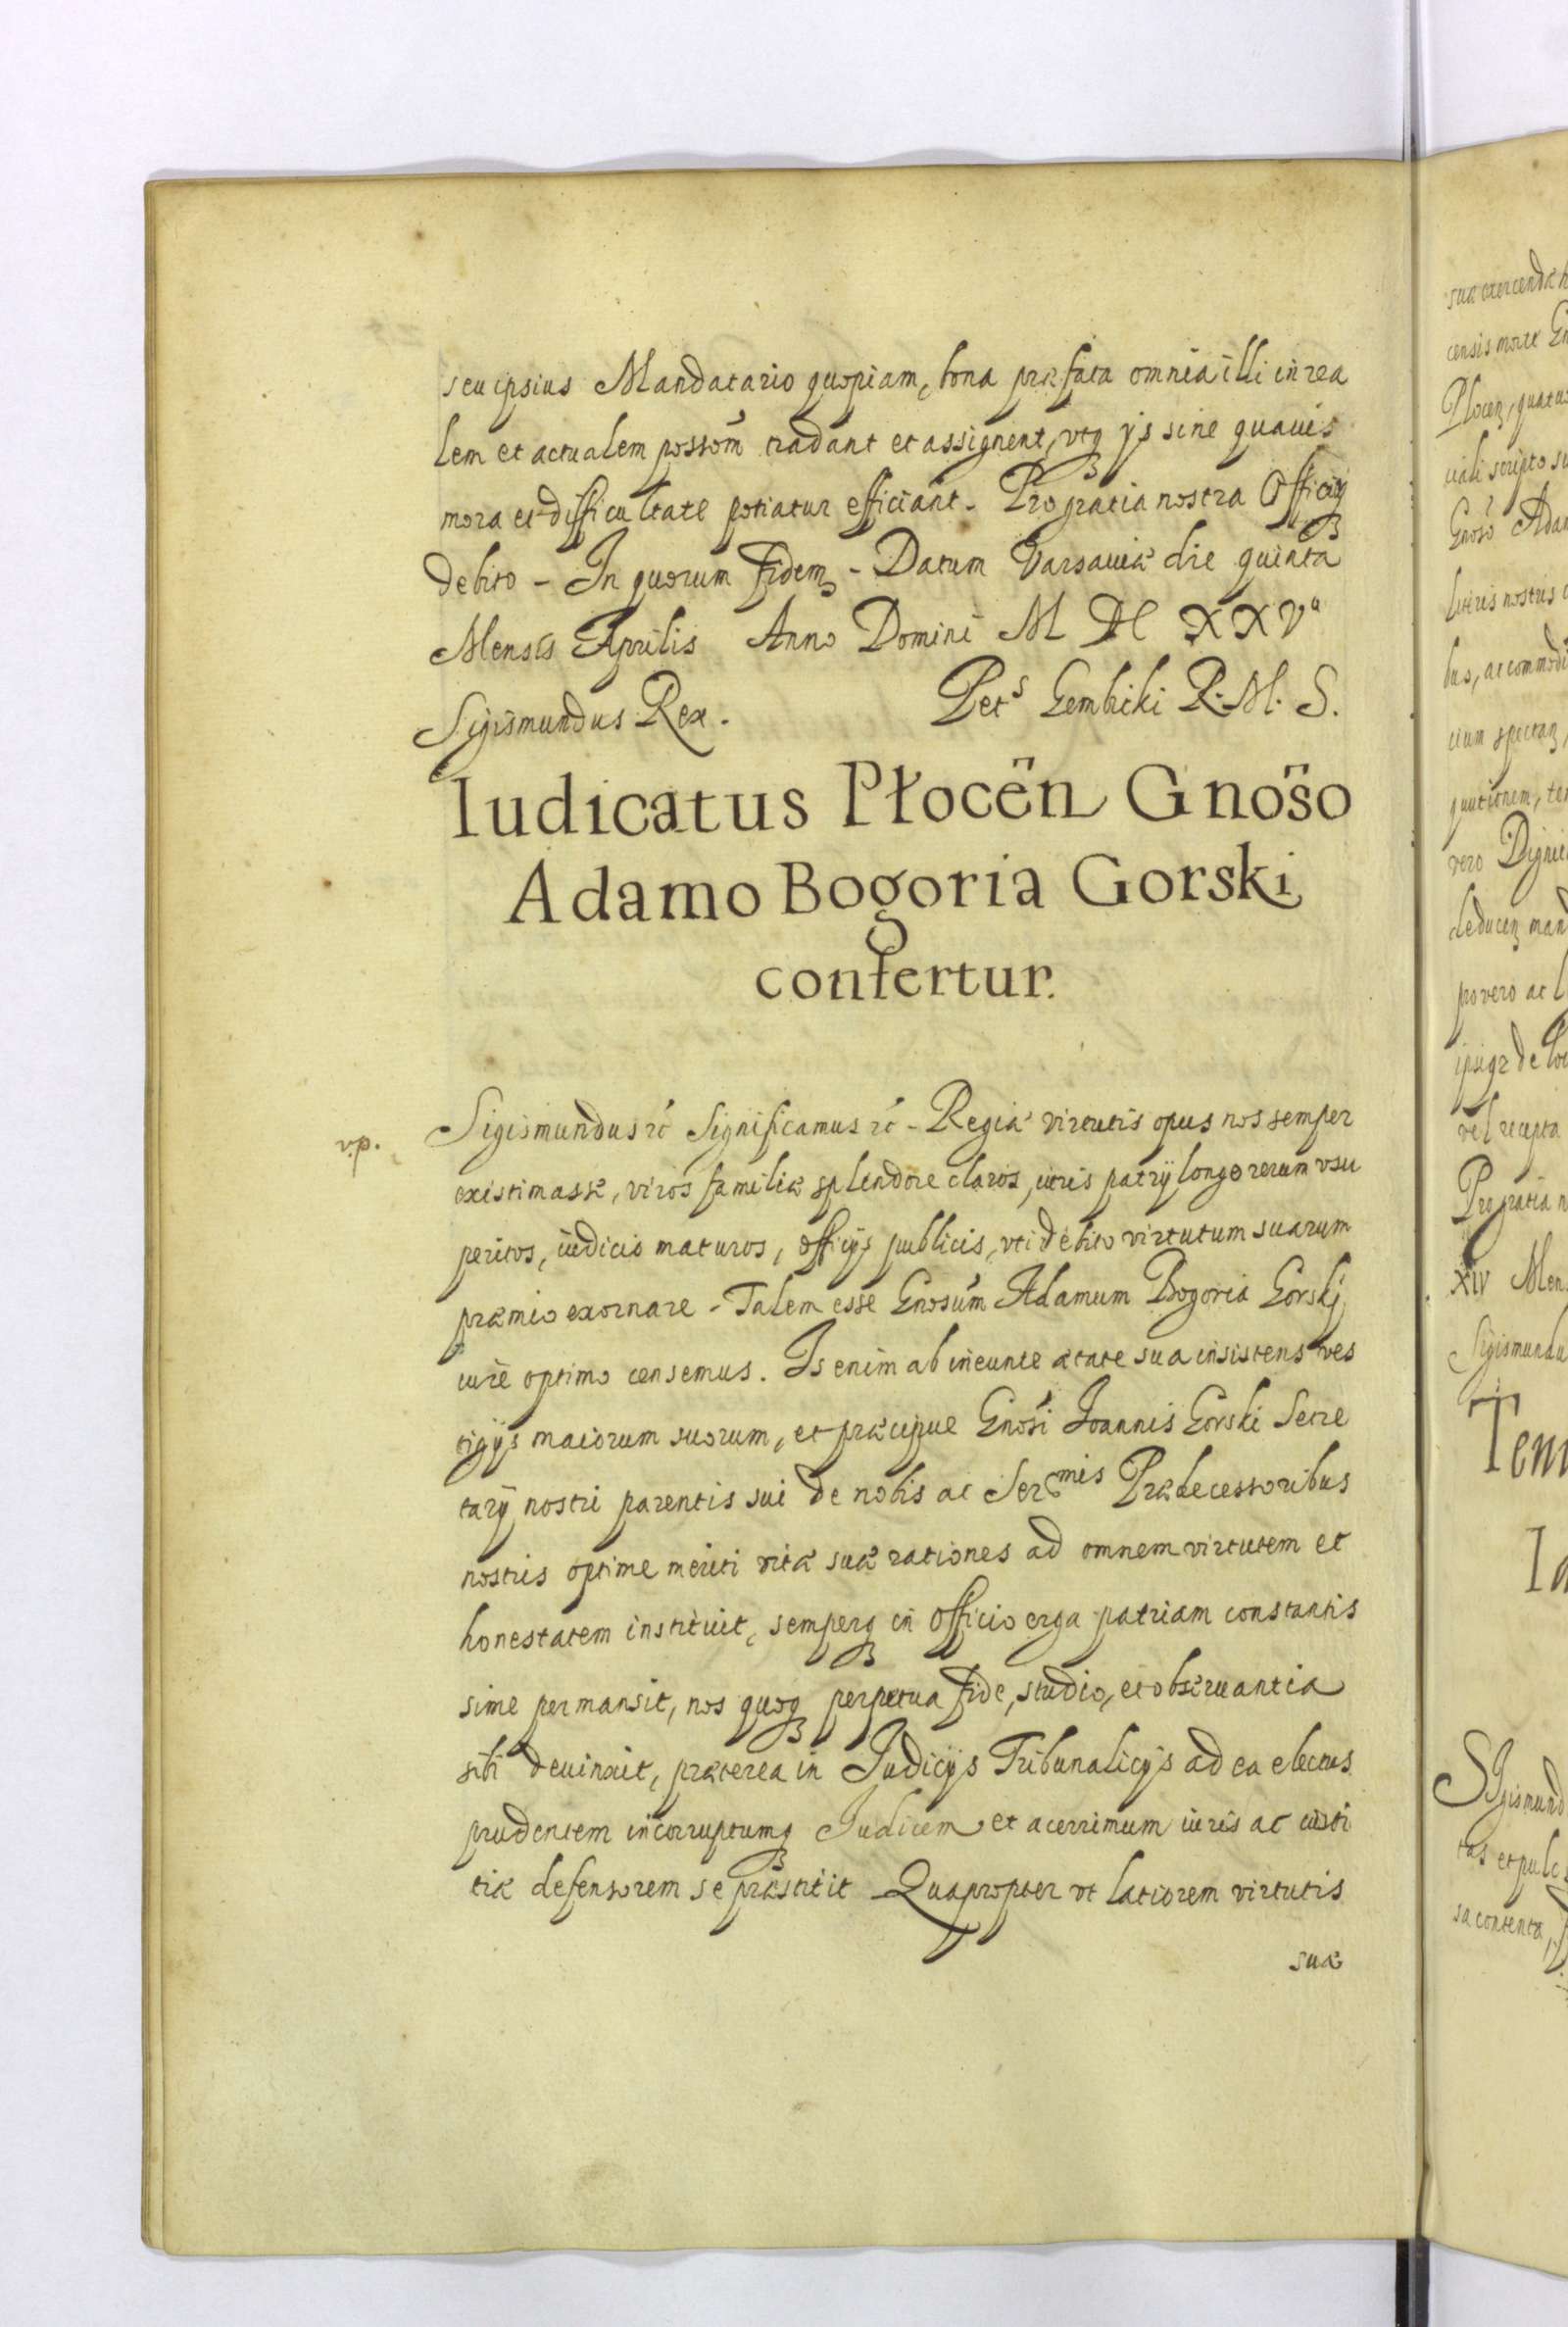 seu ipsius Mandatario quopiam, bona præfata omnia illi in rea
lem et actualem possom̃ tradant et assignent, vtq3 ijs sine quauis
mora et difficultate potiatur efficiant. Pro gratia nostra Officiq3
debito - In quorum fidem - Datum Varsauiæ die quinta
Mensis Aprilis Anno Domini M DC XXVᵗᵃ
Sigismundus Rex. Petˢ Gembicki R. M. S.
Iudicatus Płoceñ Gnoso
Adamo Bogoria Gorski
confertur.
v.p.
Sigismundus rc̃ Significamus rc̃ - Regiæ virtutis opus nos semper
existimasse, viros familiæ splendore claros, iuris patrij longo rerum vsu
peritos, iudicio maturos, officijs publicis, vti debito virtutum suarum
præmio exornare - Talem esse Gnosum̃ Adamum Bogoria Gorskj
iure optimo censemus. Is enim ab ineunte ætate sua insistens ves
tigijs maiorum suorum, et præcipue Gnosi Joannis Gorski Secre
tarij nostri parentis sui de nobis ac Serᵐⁱˢ Prædecessoribus
nostris optime meriti vitæ suæ rationes ad omnem virtutem et
honestatem instituit, semperq3 in officio erga patriam constantis
sime permansit, nos quoq3 perpetua fide, studio, et obseruantia
sibi deuinxit, præterea in Judicijs Tribunalicijs ad ea electus
prudentem incorruptumq3 Judicem et acerrimum iuris ac iusti
tiæ defensorem se præstitit Quapropter vt latiorem virtutis
suæ